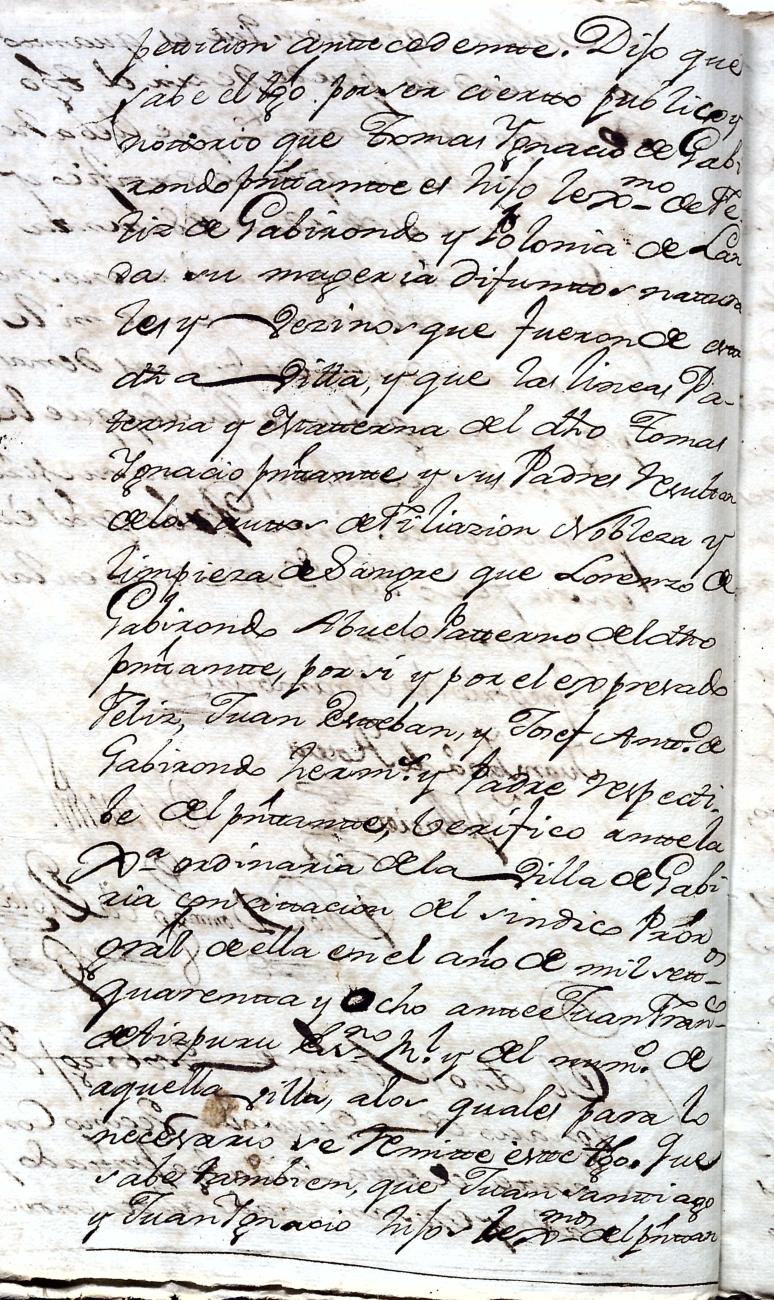 peticion antecedente. Dijo que
save el tgo. por ser cierto publico y
nottorio que Tomas Ygnacio de Gabi
rondo pntante es hijo lexmo de Fe
liz de Gabirondo y Polonia de Lan
da su muger ia difuntos nattura
les y Vezinos que fueron de esta
dha Villa, y que las lineas Pa-
terna y Matterna del dho Tomas
Ygnacio pntante y sus Padres resultan
de los auttos de Filiazion Nobleza y
limpieza de Sangre que Lorenzo de
Gabirondo Abuelo Patterno del dho
pntante, por si y por el expresado
Feliz, Juan Esteban, y Josef Antto. de
Gabirondo herms. y Padre respecti-
be del pntante, berifico ante la
Xa ordinaria de la Villa de Gabi-
ria con cittacion del sindico Prõr
gral de ella en el año de mil settos
quarenta y ocho ante Juan Franco
de Aizpuru Esno Rl. y del numo. de
aquella villa, a los quales para lo
necesario se remitte estte tgo. Que
sabe tambien, que Juan Santtiago
y Juan Ygnacio hijos lexmos del pntan